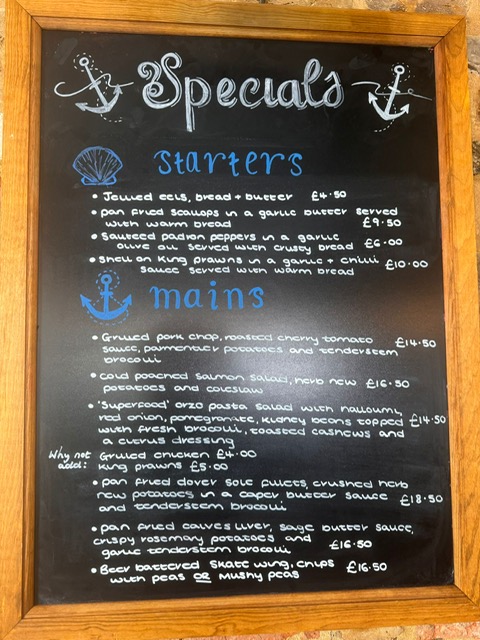 Specials
starters
• Jellied eels, bread + butter £4.50
• pan fried scallops in a garlic butter served
with warm bread £9.50
• Sauteed padron peppers in a garlic
olive oil served with crusty bread £6.00
• Shell on King prawns in a garlic + chilli
sauce served with warm bread £10.00
mains
• Grilled pork chop, roasted cherry tomato £14.50
sauce, parmentier potatoes and tenderstem
brocolli
• Cold poached salmon salad, herb new £16.50
potatoes and coleslaw
• 'Superfood' orzo pasta salad with halloumi,
red onion, pomegranate, kidney beans topped £14.50
with fresh brocolli, toasted cashews and
a citrus dressing
Why not Grilled chicken £4.00
add: King prawns £5.00
• pan fried dover sole fillets, crushed herb
new potatoes in a caper butter sauce £18.50
and tenderstem brocolli
• pan fried calves liver, sage butter sauce,
crispy rosemary potatoes and
garlic tenderstem brocolli £16.50
• Beer battered skate wing, chips £16.50
with peas OR mushy peas